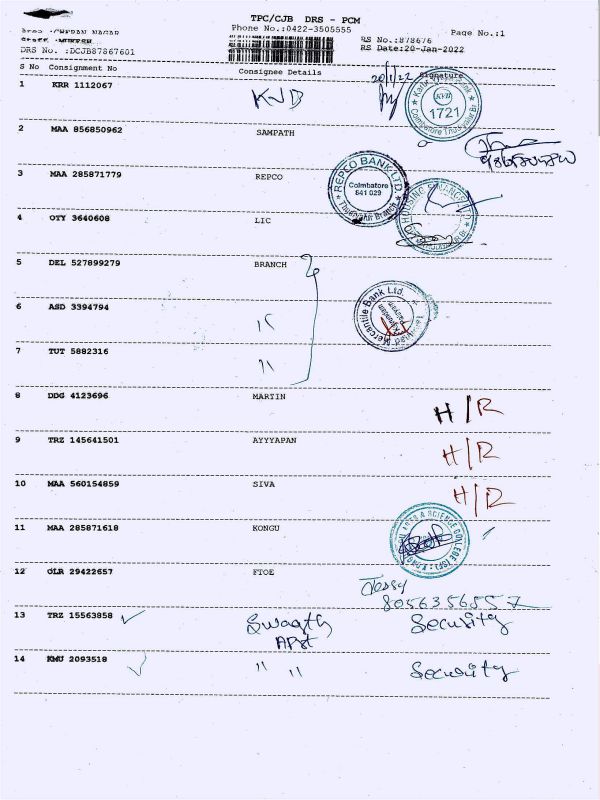 TPC/CJB DRS - PCM
Phone No.:0422-3505555
Page No.:1
RS No.:878676
DRS No. :DCJB87867601
RS Date:20-Jan-2022
S No Consignment No Consignee Details Signature
20/1/22
1 KRR 1112067 KVB
KVB
1721
2 MAA 856850962 SAMPATH
3 MAA 285871779 REPCO
REPCO BANK LTD.
Coimbatore
641 029
4 OTY 3640608 LIC
5 DEL 527899279 BRANCH
Mercantile Bank Ltd.
6 ASD 3394794 "
7 TUT 5882316 "
8 DDG 4123696 MARTIN H/R
9 TRZ 145641501 AYYYAPAN H/R
10 MAA 560154859 SIVA H/R
11 MAA 285871618 KONGU
ARTS & SCIENCE COLLEGE
12 GLR 29422657 FTOE
Jessy
8056356557
13 TRZ 15563858 Swaath Security
Apt
14 KMU 2093518 " " Security